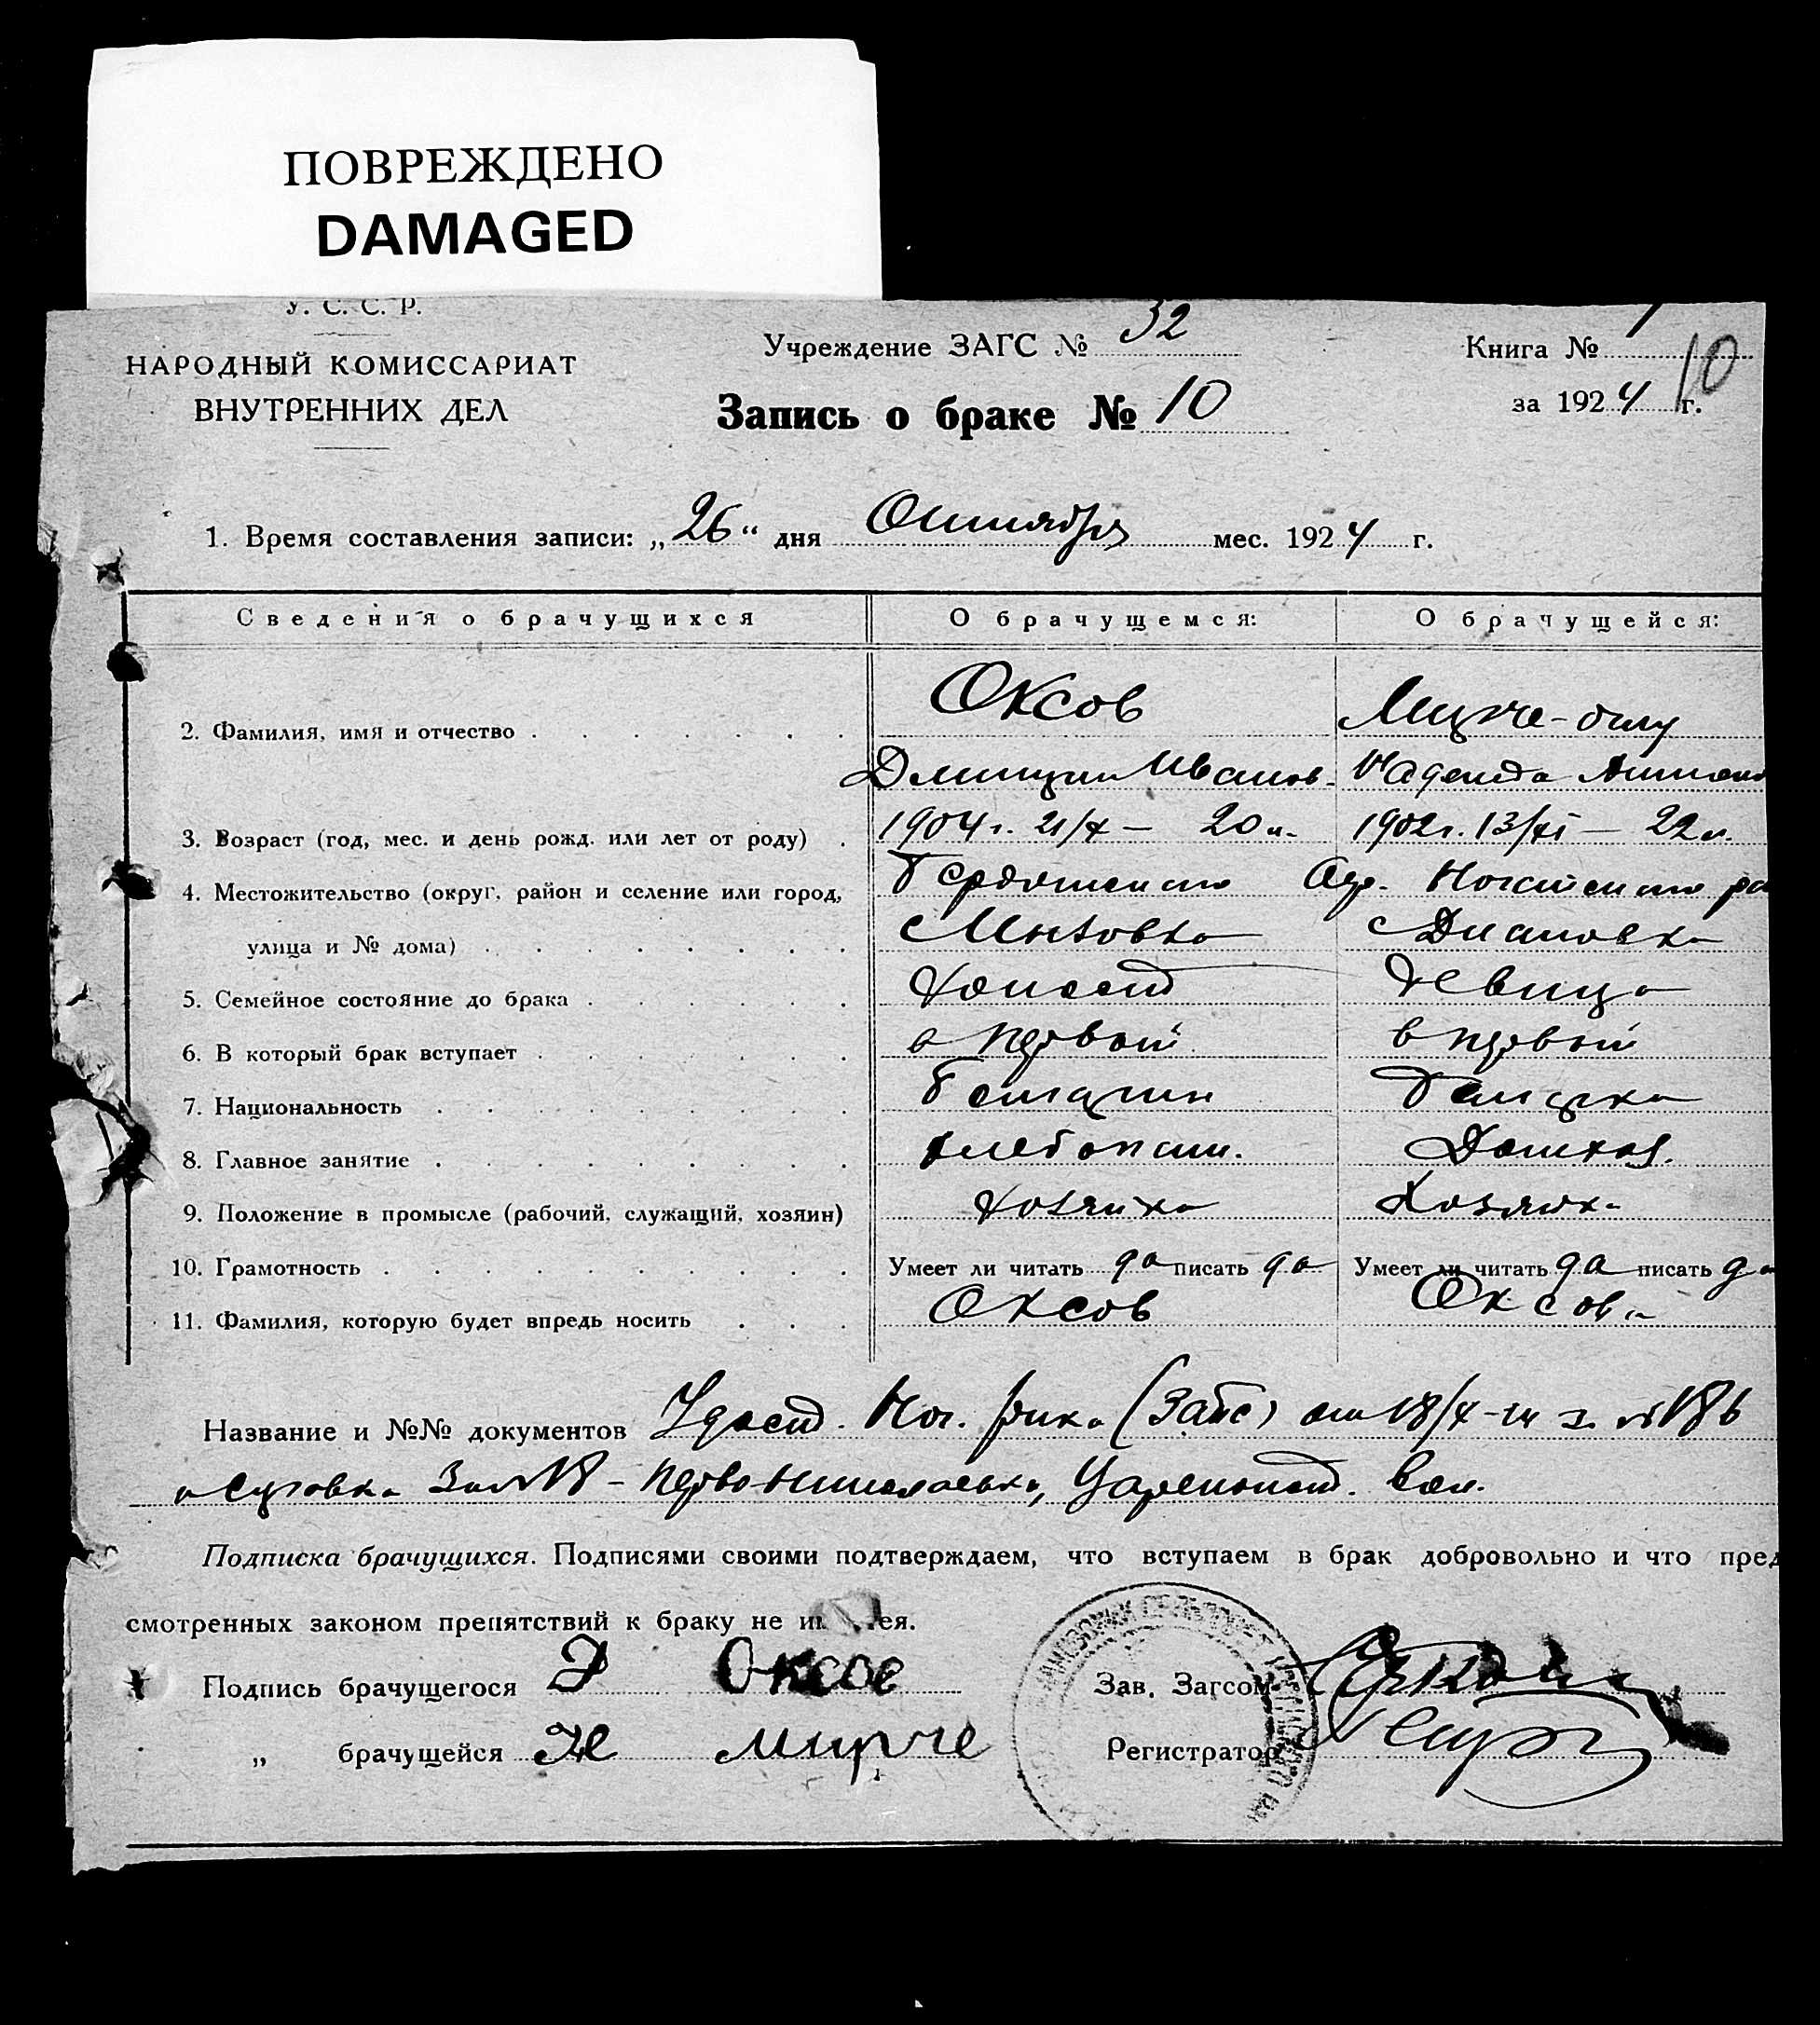 ПОВРЕЖДЕНО
DAMAGED
У. С. С. Р.
НАРОДНЫЙ КОМИССАРИАТ
ВНУТРЕННИХ ДЕЛ
Учреждение ЗАГС № 32
Книга №
10
за 1924 г.
Запись о браке № 10
1. Время составления записи: „26“ дня Октября мес. 1924 г.
Сведения о брачущихся О брачущемся: О брачущейся:
2. Фамилия, имя и отчество Оксов
Дмитрий Иванов. Надежда
3. Возраст (год, мес. и день рожд. или лет от роду) 1904 г. 21/X — 20 л. 1902 г. 13/XI — 22 л.
4. Местожительство (округ, район и селение или город, Бердянский Окр.
улица и № дома) с Диановка
5. Семейное состояние до брака Холост Девица
6. В который брак вступает в первый в первый
7. Национальность Болгарка
8. Главное занятие хлебопаш. Домхоз.
9. Положение в промысле (рабочий, служащий, хозяин) Хозяйка
10. Грамотность Умеет ли читать да писать да Умеет ли читать да писать да
11. Фамилия, которую будет впредь носить Оксов Оксова
Название и №№ документов Удост. Ног. (Загс) от 18/X-24 г. № 186
Подписка брачущихся. Подписями своими подтверждаем, что вступаем в брак добровольно и что пред
смотренных законом препятствий к браку не
Подпись брачущегося Д Оксов Зав. Загсом
„ брачущейся Н Мирче Регистратор